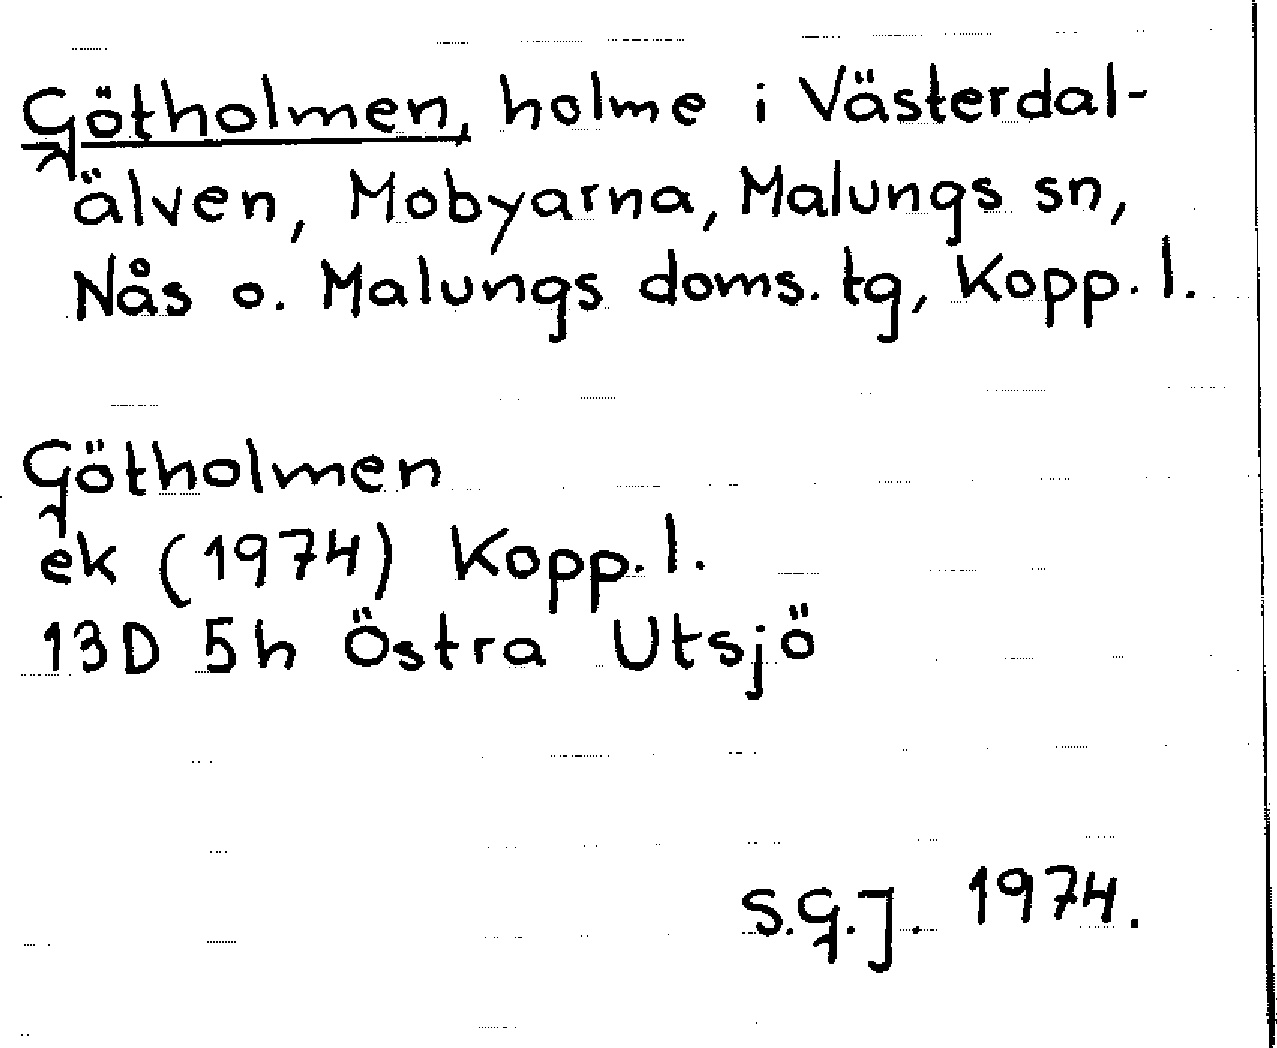 Götholmen, holme i Västerdal-
älven, Mobyarna, Malungs sn,
Nås o. Malungs doms. tg, Kopp. l.
Götholmen
ek (1974) Kopp. l.
13D 5h Östra Utsjö
S.G.J. 1974.